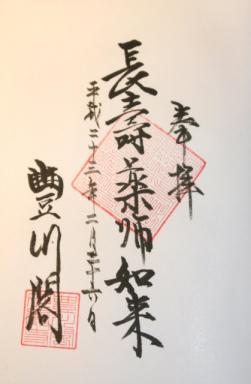 奉拝
長壽薬師如来
平成二十三年二月二十六日
豊川閣